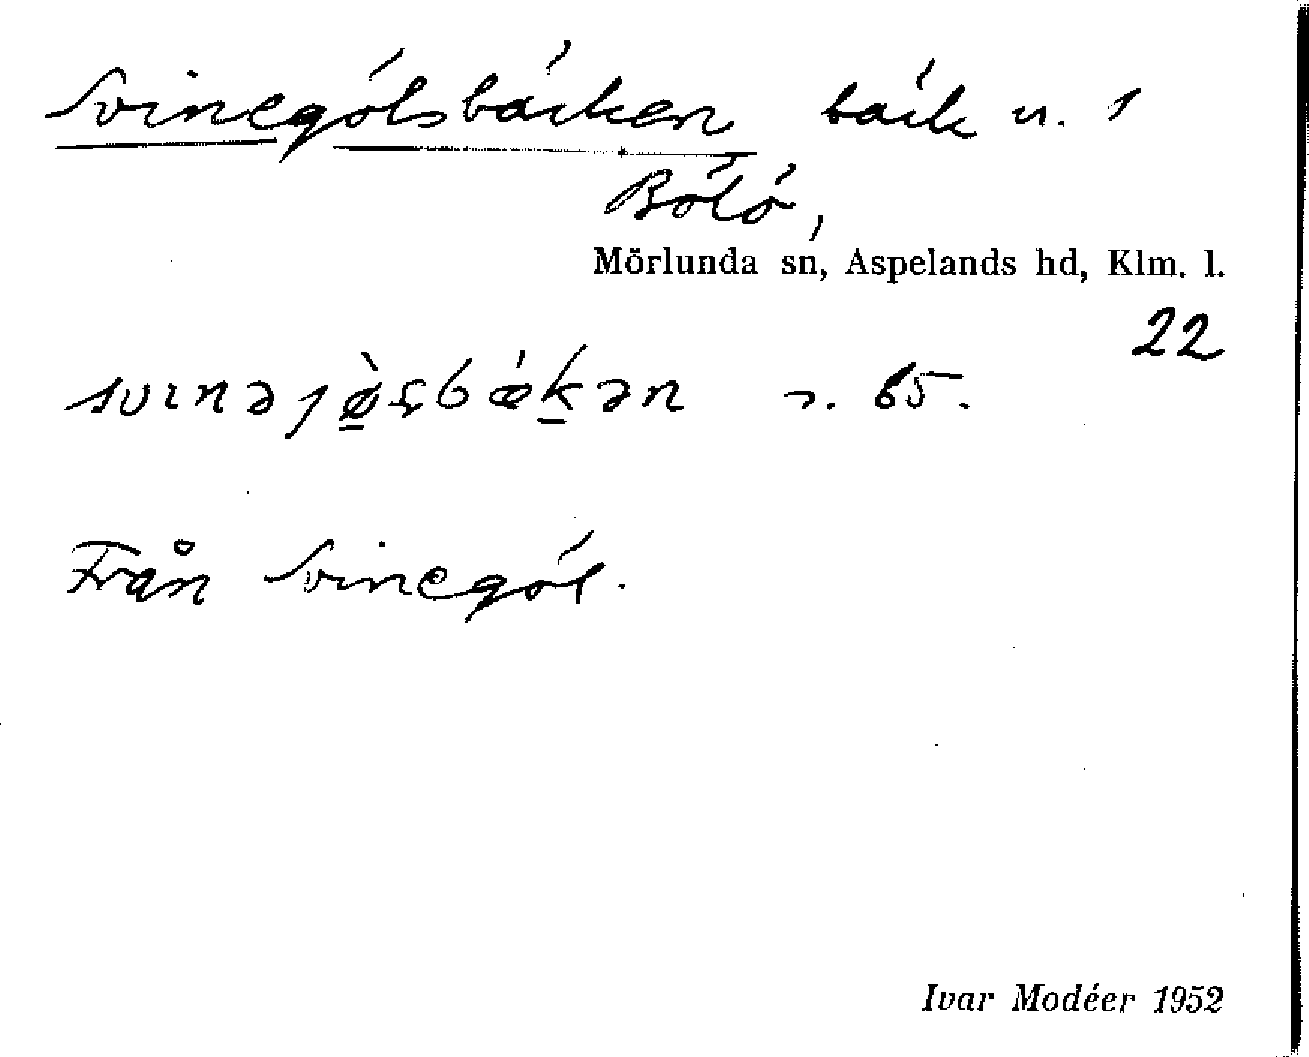 Svinegölsbäcken bäck n. 1
Bölö,
Mörlunda sn, Aspelands hd, Klm. l.
22
65.
Från Svinegöl.
Ivar Modéer 1952